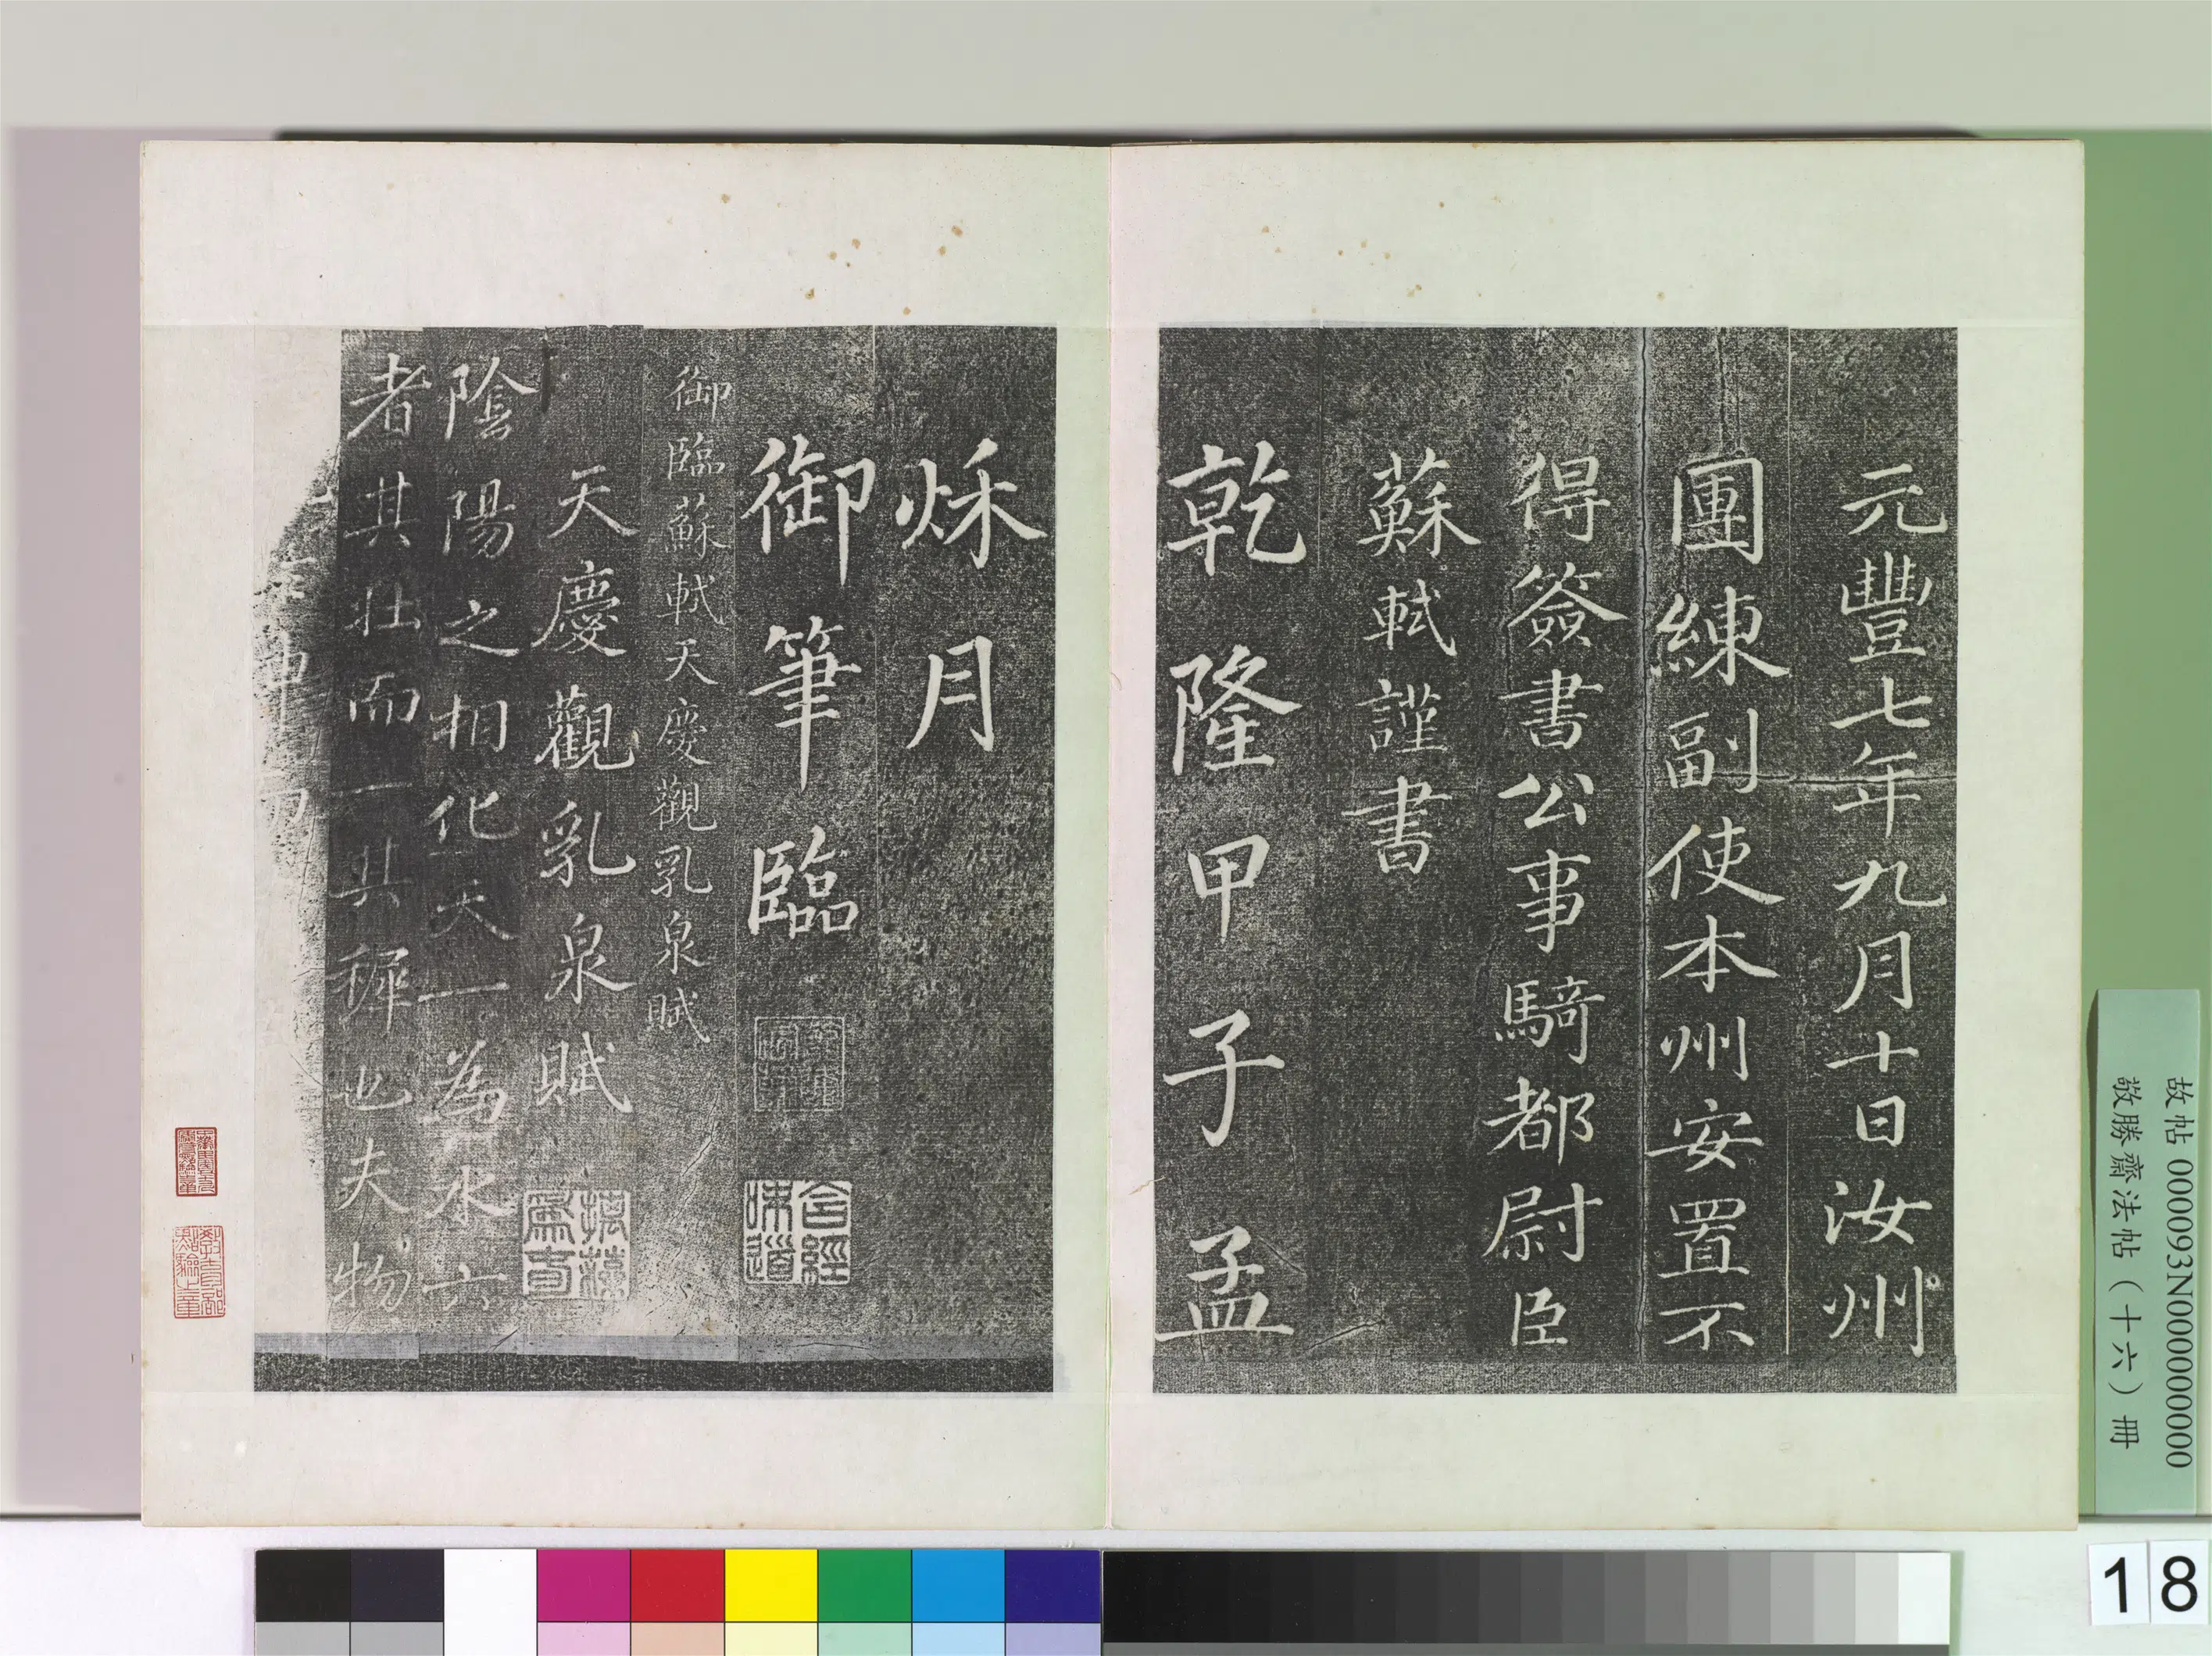 元豐七年九月十日汝州
團練副使本州安置不
得簽書公事騎都尉臣
蘇軾謹書
乾隆甲子孟
秌月
御筆臨
含經味道
御臨蘇軾天慶觀乳泉賦
天慶觀乳泉賦
陰陽之相化天一為水六
者其壯而一其穉也夫物
故帖 000093N000000000
敬勝齋法帖（十六）冊
18